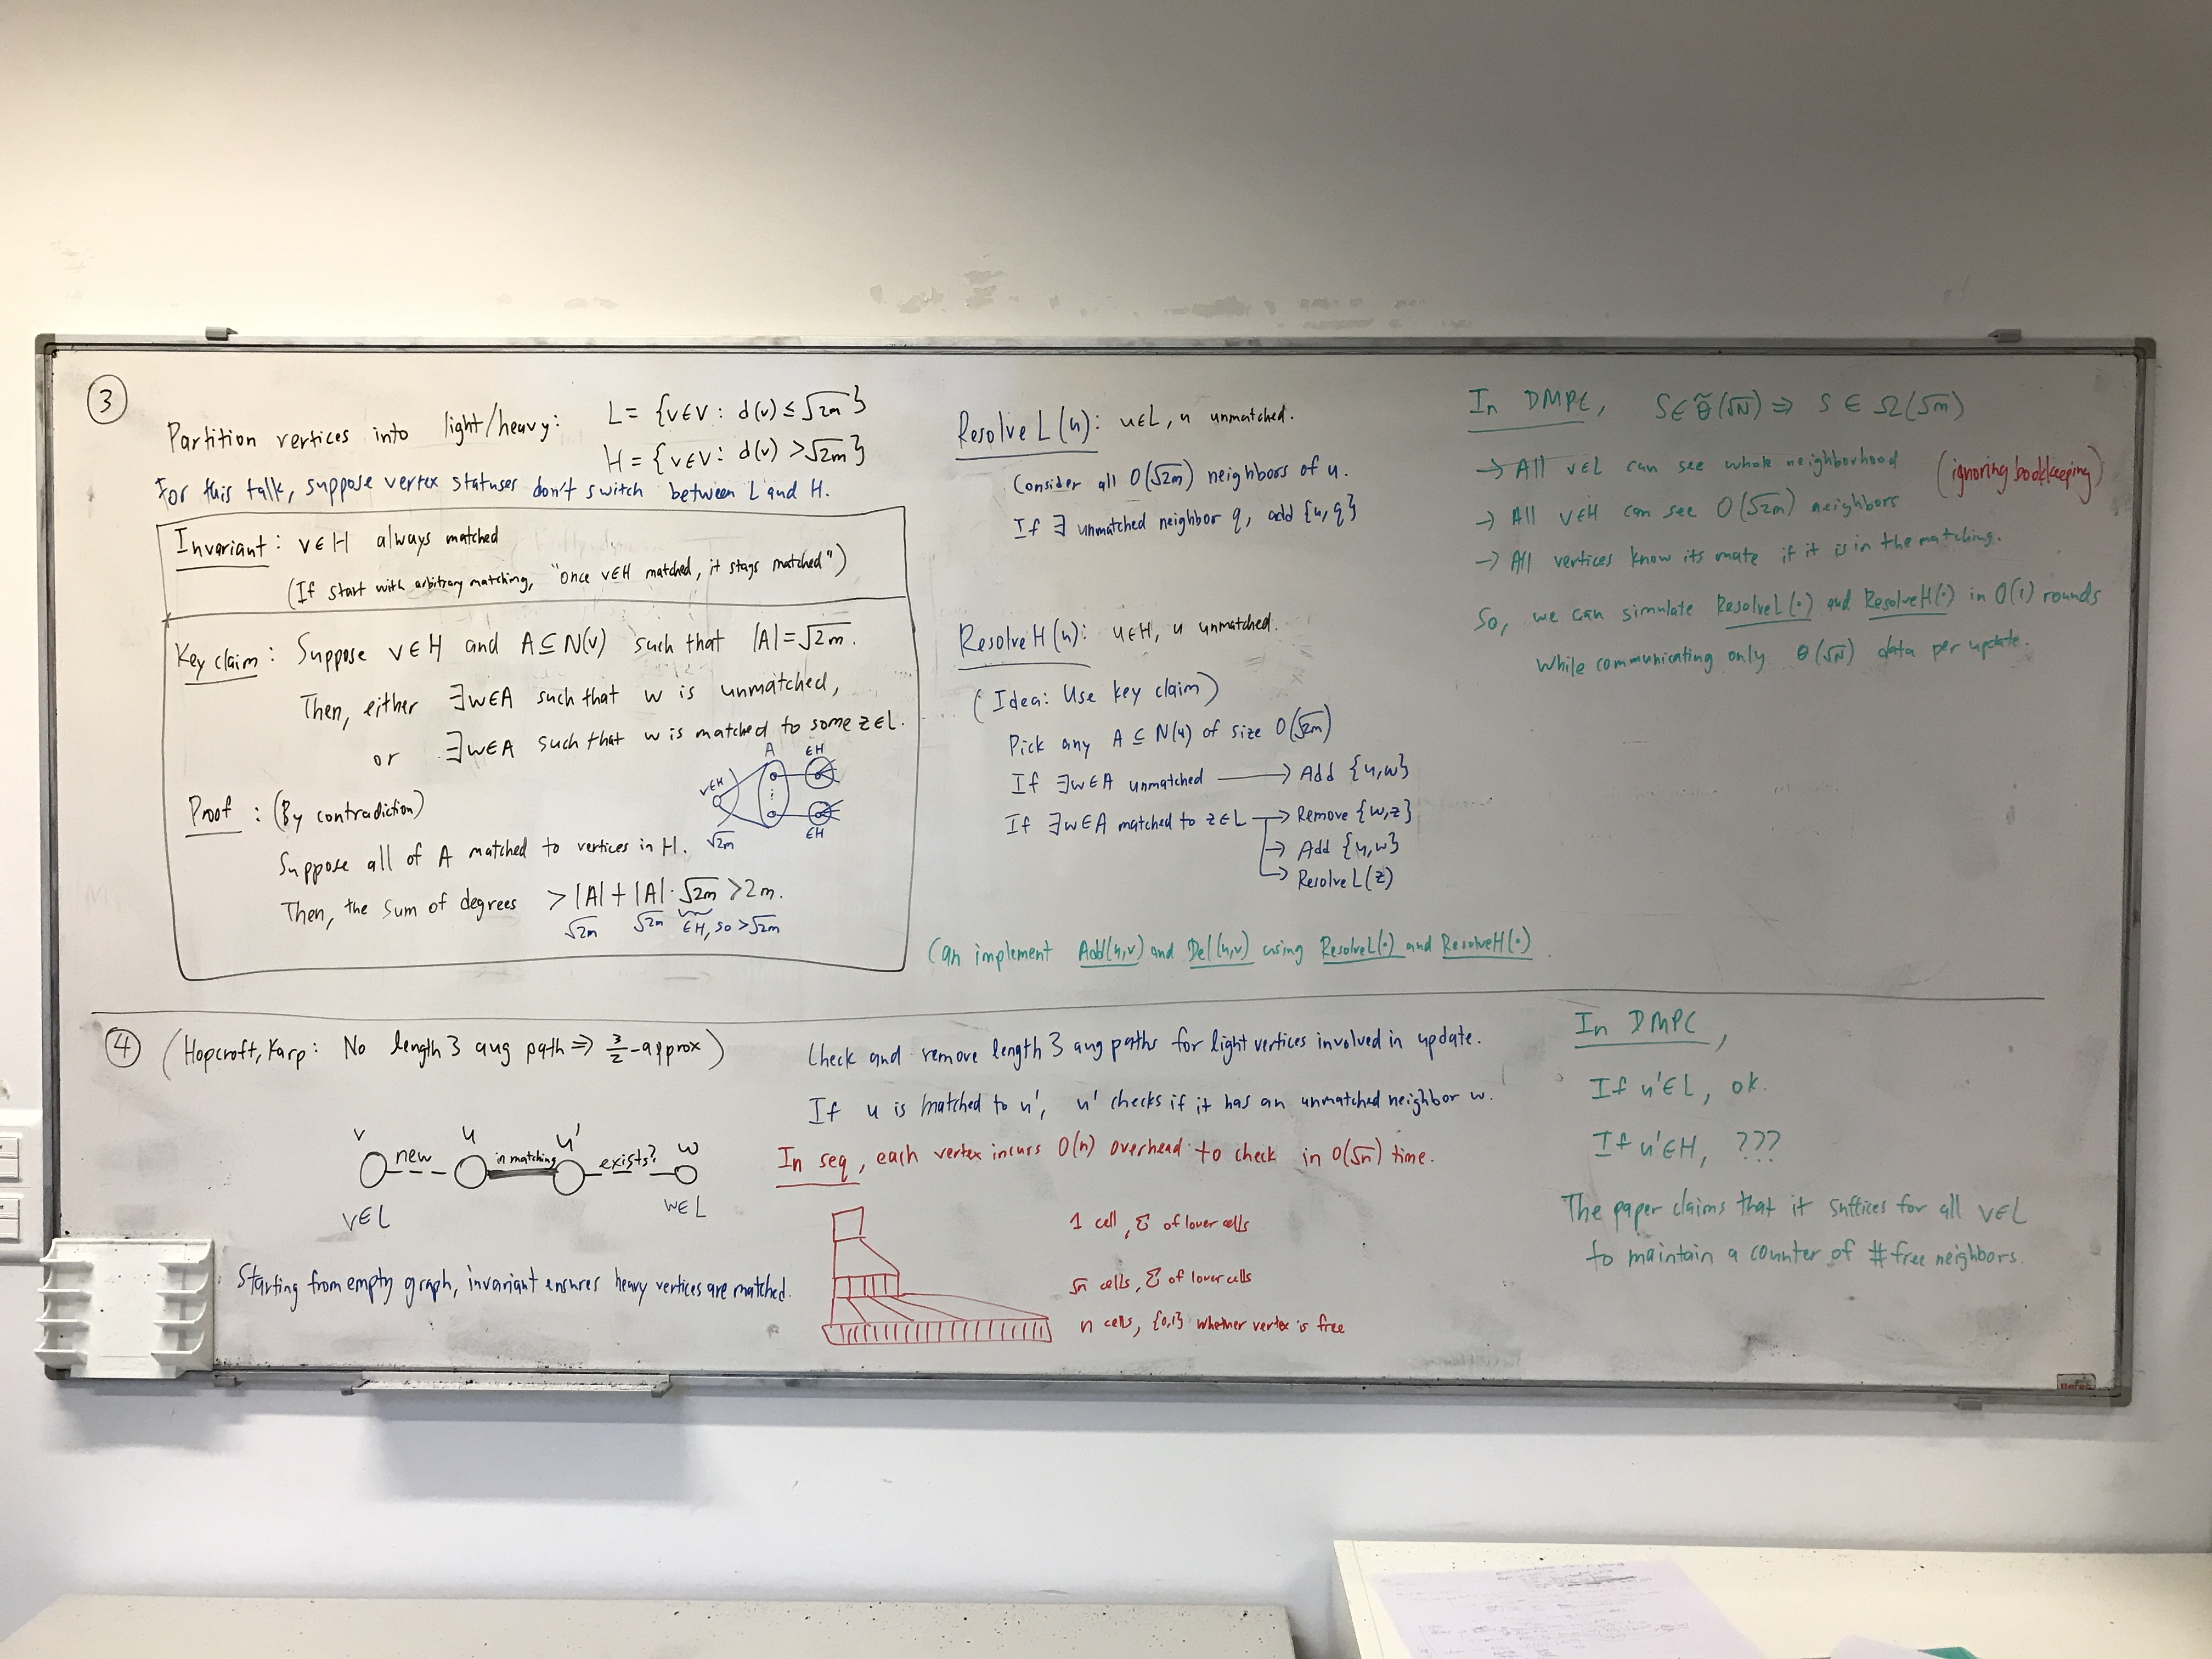 ③
Partition vertices into light/heavy: L = {v∈V : d(v) ≤ √2m}
H = {v∈V : d(v) > √2m}
For this talk, suppose vertex statuses don't switch between L and H.
Invariant : v∈H always matched
(If start with arbitrary matching, "once v∈H matched, it stays matched")
Key claim : Suppose v∈H and A⊆N(v) such that |A| = √2m.
Then, either ∃w∈A such that w is unmatched,
or ∃w∈A such that w is matched to some z∈L.
A
∈H
v∈H
√2m
∈H
Proof : (By contradiction)
Suppose all of A matched to vertices in H.
Then, the sum of degrees > |A| + |A| · √2m > 2m.
√2m √2m ∈H, so > √2m
Resolve L(u) : u∈L, u unmatched.
Consider all O(√2m) neighbors of u.
If ∃ unmatched neighbor q, add {u,q}
Resolve H(u) : u∈H, u unmatched.
(Idea: Use key claim)
Pick any A ⊆ N(u) of size O(√2m)
If ∃w∈A unmatched → Add {u,w}
If ∃w∈A matched to z∈L → Remove {w,z}
→ Add {u,w}
→ ResolveL(z)
Can implement Add(u,v) and Del(u,v) using ResolveL(·) and ResolveH(·).
In DMPC, S∈Θ̃(√N) ⇒ S ∈ Ω(√m)
→ All v∈L can see whole neighborhood (ignoring bookkeeping)
→ All v∈H can see O(√2m) neighbors
→ All vertices know its mate if it is in the matching.
So, we can simulate ResolveL(·) and ResolveH(·) in O(1) rounds
while communicating only Θ(√N) data per update.
④ (Hopcroft, Karp: No length 3 aug path ⇒ 3/2-approx)
v new u in matching u' exists? w
v∈L w∈L
Starting from empty graph, invariant ensures heavy vertices are matched.
Check and remove length 3 aug paths for light vertices involved in update.
If u is matched to u', u' checks if it has an unmatched neighbor w.
In seq, each vertex incurs O(n) overhead to check in O(√n) time.
1 cell, Σ of lower cells
√n cells, Σ of lower cells
n cells, {0,1} whether vertex is free
In DMPC,
If u'∈L, ok.
If u'∈H, ???
The paper claims that it suffices for all v∈L
to maintain a counter of # free neighbors.